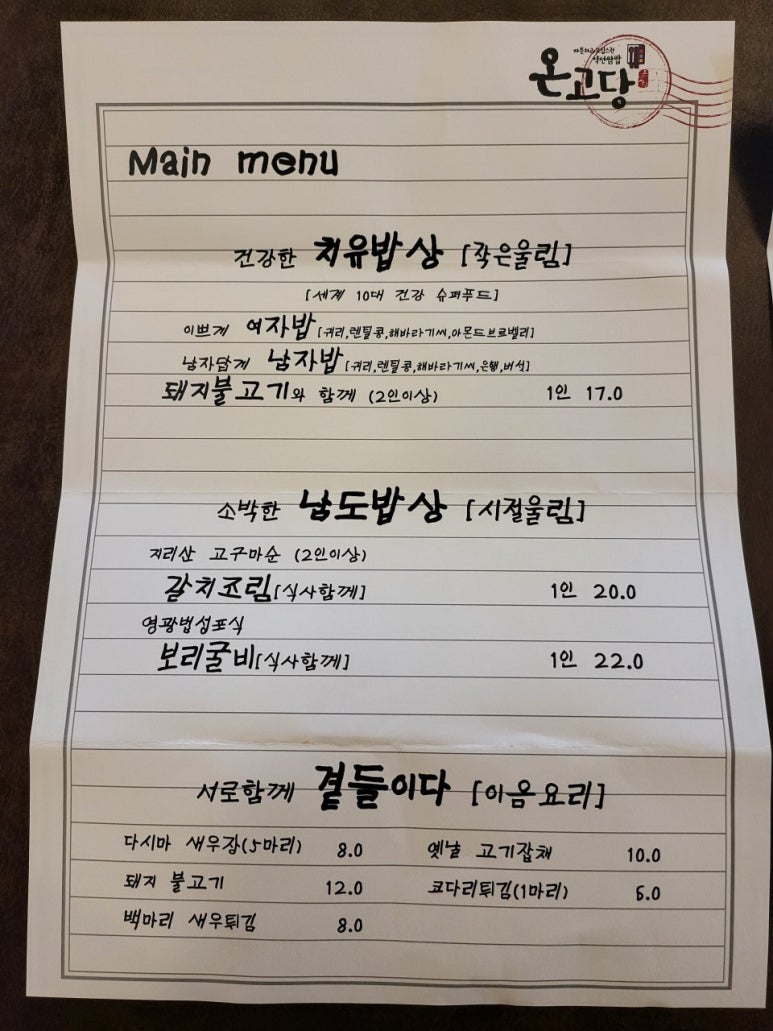 약선쌈밥
온고당
Main menu
건강한 치유밥상 [작은울림]
[세계 10대 건강 슈퍼푸드]
이쁘게 여자밥[귀리,렌틸콩,해바라기씨,아몬드브로벨리]
남자답게 남자밥[귀리,렌틸콩,해바라기씨,은행,버섯]
돼지불고기와 함께 (2인이상) 1인 17.0
소박한 남도밥상 [시절울림]
지리산 고구마순 (2인이상)
갈치조림[식사함께] 1인 20.0
영광법성포식
보리굴비[식사함께] 1인 22.0
서로함께 곁들이다 [이음요리]
다시마 새우장(5마리) 8.0 옛날 고기잡채 10.0
돼지 불고기 12.0 코다리튀김(1마리) 6.0
백마리 새우튀김 8.0